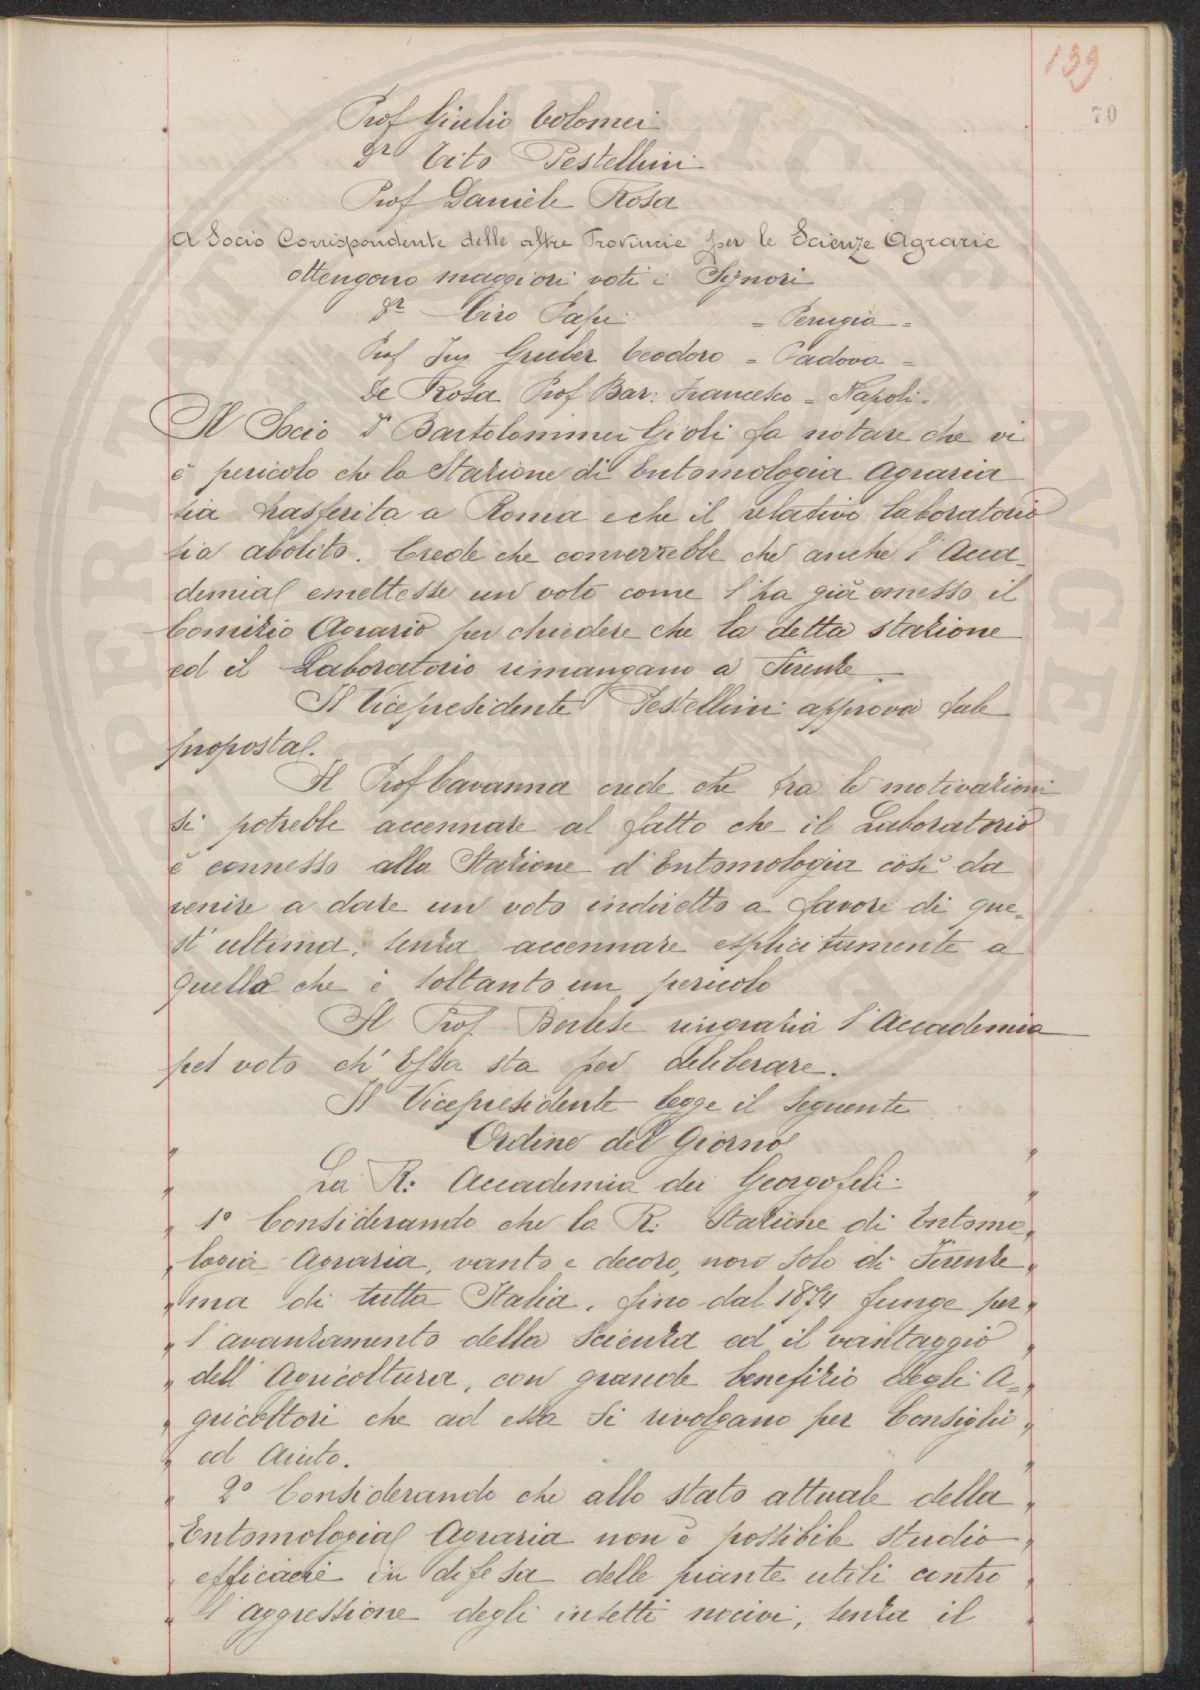 139
70
Prof Giulio Tolomei
Dr Tito Pestellini
Prof Daniele Rosa
A Socio Corrispondente delle altre Provincie per le Scienze Agrarie
ottengono maggiori voti i Signori
Dr Ciro Papi = Perugia =
Prof Ing Gruber Teodoro = Padova =
De Rosa Prof Bar: Francesco = Napoli =
Il Socio Dr Bartolommei Gioli fa notare che vi
è pericolo che la Stazione di Entomologia Agraria
sia trasferita a Roma e che il relativo laboratorio
sia abolito. Crede che converrebbe che anche l'Acca-
demia emettesse un voto come l'ha già emesso il
Comizio Agrario per chiedere che la detta stazione
ed il Laboratorio rimangano a Firenze.
Il Vicepresidente Pestellini approva tale
proposta.
Il Prof Cavanna crede che tra le motivazioni
si potrebbe accennare al fatto che il Laboratorio
è connesso alla Stazione d'Entomologia così da
venire a dare un voto indiretto a favore di que=
st'ultima, senza accennare esplicitamente a
quello che è soltanto un pericolo
Il Prof. Berlese ringrazia l'Accademia
pel voto ch'Essa sta per deliberare.
Il Vicepresidente legge il seguente
Ordine del Giorno
La R: Accademia dei Georgofili:
" 1° Considerando che la R. Stazione di Entomo "
" logia Agraria, vanto e decoro, non solo di Firenze "
" ma di tutta Italia, fino dal 1874 funge per "
" l'avanzamento della Scienza ed il vantaggio "
" dell'Agricoltura, con grande benefizio degli A= "
" gricoltori che ad essa si rivolgano per Consiglii "
" ed Aiuto. "
" 2° Considerando che allo stato attuale della "
" Entomologia Agraria non è possibile studio "
" efficace in difesa delle piante utili contro "
" l'aggressione degli insetti nocivi, senza il "